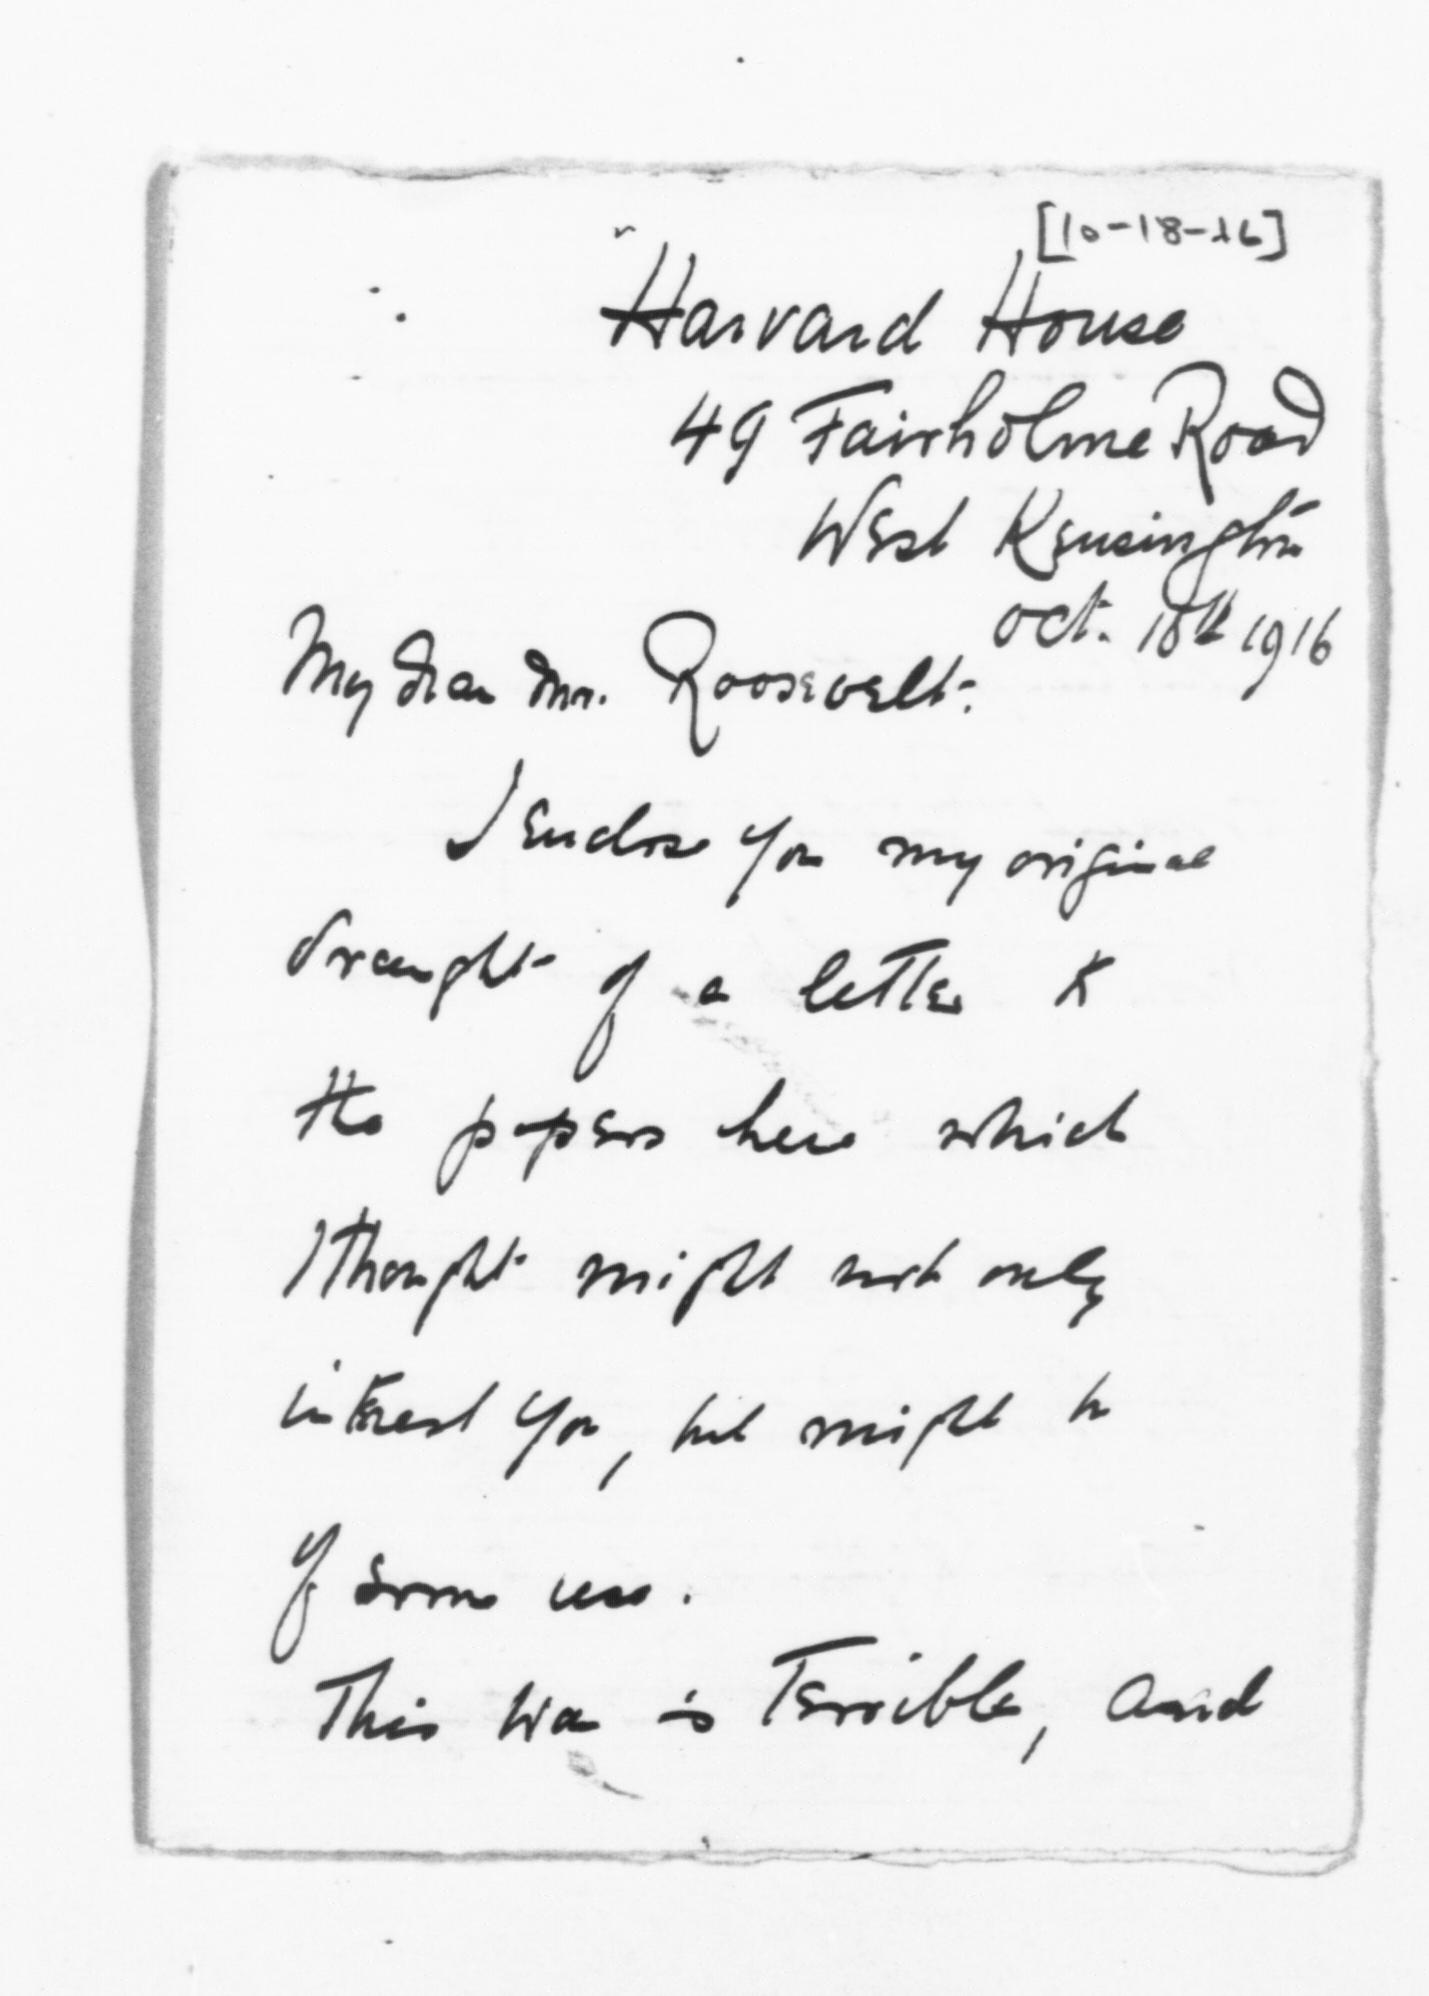 [10-18-16]
Harvard House
49 Fairholme Road
West Kensington
Oct. 18th 1916
My dear Mr. Roosevelt:
I enclose you my original
draught of a letter to
the papers here which
I thought might not only
interest you, but might be
of some use.
This war is Terrible, and